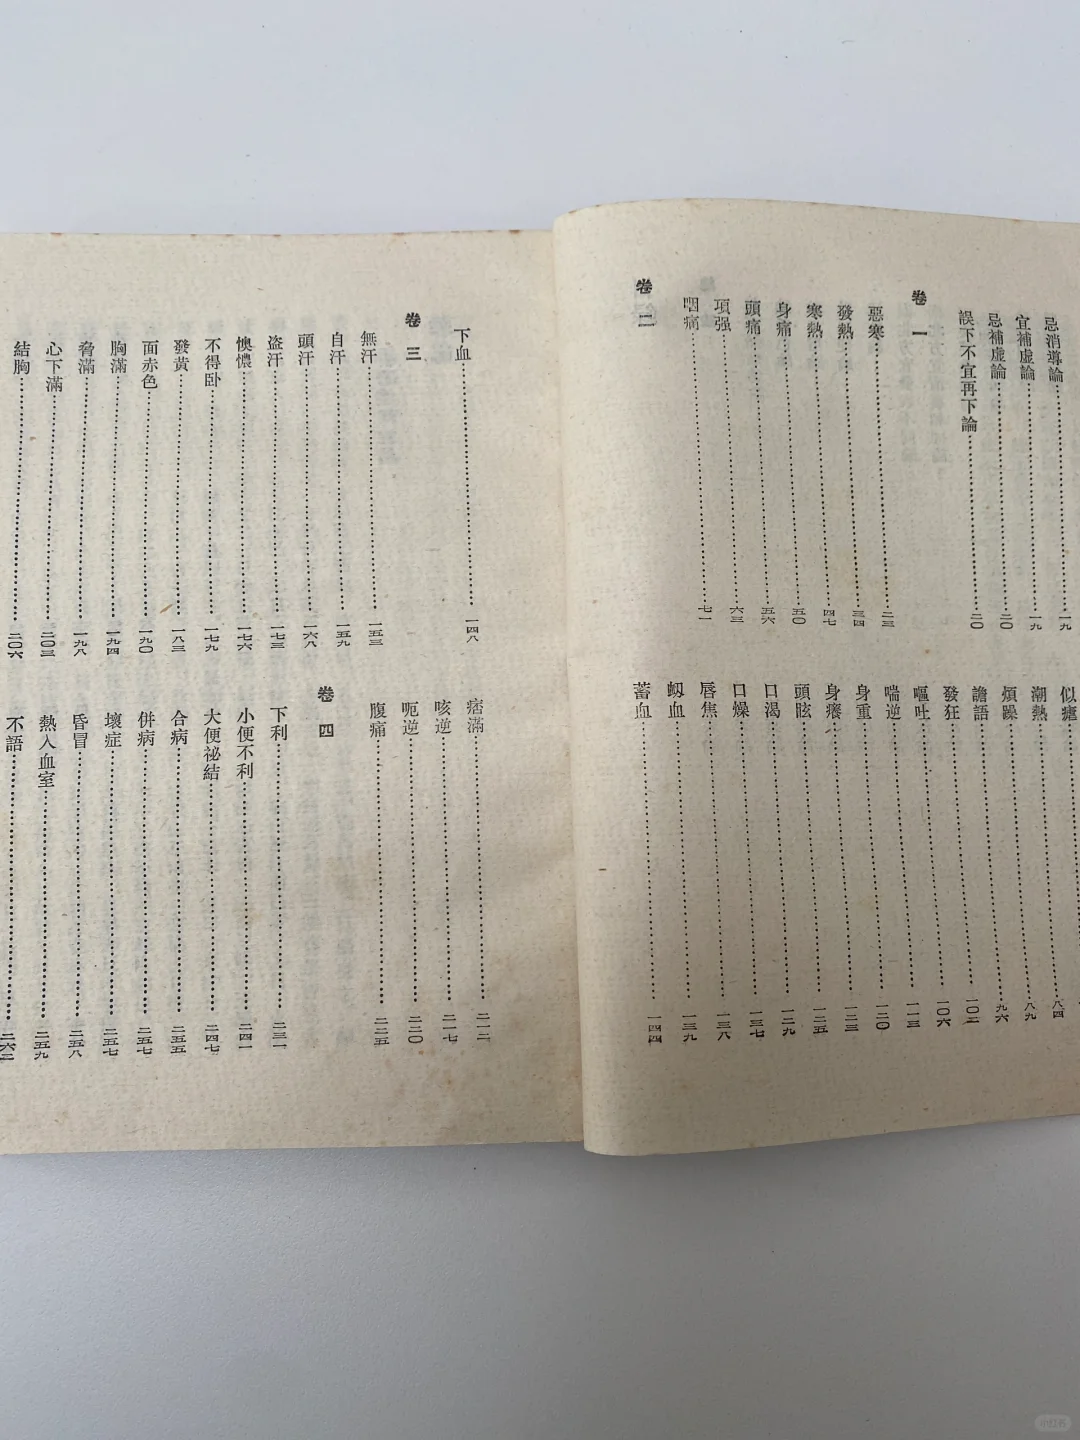 忌消導論……一九
宜補虛論……一九
忌補虛論……二〇
誤下不宜再下論……二〇
卷一
惡寒……二三
發熱……三四
寒熱……四七
身痛……五〇
頭痛……五六
項强……六三
咽痛……七一
卷二
似瘧……
潮熱……八四
煩躁……八九
譫語……九六
發狂……一〇二
嘔吐……一〇六
喘逆……一一三
身重……一二〇
身癢……一二三
頭眩……一二五
口渴……一二九
口燥……一三七
唇焦……一三八
衂血……一三九
蓄血……一四四
下血……一四八
卷三
無汗……一五三
自汗……一五九
頭汗……一六八
盗汗……一七三
懊憹……一七六
不得卧……一七九
發黃……一八三
面赤色……一九〇
胸滿……一九四
脅滿……一九八
心下滿……二〇三
結胸……二〇六
痞滿……二一二
咳逆……二一七
呃逆……二二〇
腹痛……二二五
卷四
下利……二三一
小便不利……二四一
大便祕結……二四七
合病……二五五
併病……二五七
壞症……二五七
昏冒……二五八
熱入血室……二五九
不語……二六二
小红书